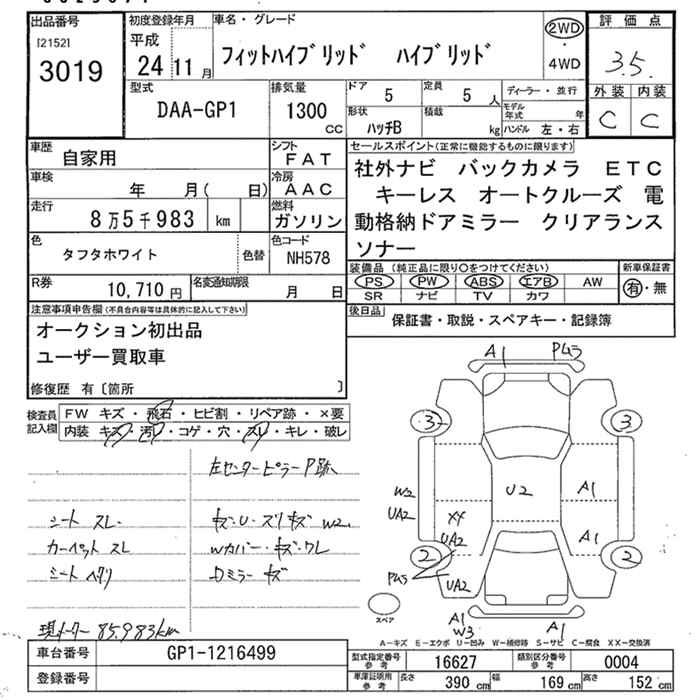 出品番号
[2152]
3019
初度登録年月
平成
24 11 月
車名・グレード
フィットハイブリッド ハイブリッド
2WD
・
4WD
評価点
3.5
外装 内装
C C
型式
DAA-GP1
排気量
1300
CC
ドア
5
定員
5 人
形状
ハッチB
積載
kg
ディーラー・並行
モデル年式 年
ハンドル 左・右
車歴
自家用
シフト
FAT
車検
年 月( 日)
冷房
AAC
走行
8万5千983 km
燃料
ガソリン
色
タフタホワイト
色替
色コード
NH578
R券
10,710 円
名変通知期限
月 日
セールスポイント(正常に機能するものに限ります)
社外ナビ バックカメラ ETC
キーレス オートクルーズ 電
動格納ドアミラー クリアランス
ソナー
装備品 (純正品に限り○をつけてください)
PS PW ABS エアB AW
SR ナビ TV カワ
新車保証書
有・無
後日品
保証書・取説・スペアキー・記録簿
注意事項申告欄(不具合内容等は具体的に記入して下さい)
オークション初出品
ユーザー買取車
修復歴 有〔箇所 〕
検査員記入欄
FW キズ・飛石・ヒビ割・リペア跡・×要
内装 キズ・汚レ・コゲ・穴・スレ・キレ・破レ
左センターピラーP跡
シート スレ
キズ・U・スリキズ W2
カーペット スレ
Wカバー・キズ・ワレ
シート ヘタリ
Dミラー キズ
現メーター 85,983km
A1
3
3
W2
UA2
XX
UA2
U2
A1
A1
2
2
UA2
A1
W3
A1
スペア
A－キズ E－エクボ U－凹み W－補修跡 S－サビ C－腐食 XX－交換済
車台番号
GP1-1216499
登録番号
型式指定番号
参考
16627
類別区分番号
参考
0004
車庫証明用
参考
長さ
390 cm
幅
169 cm
高さ
152 cm